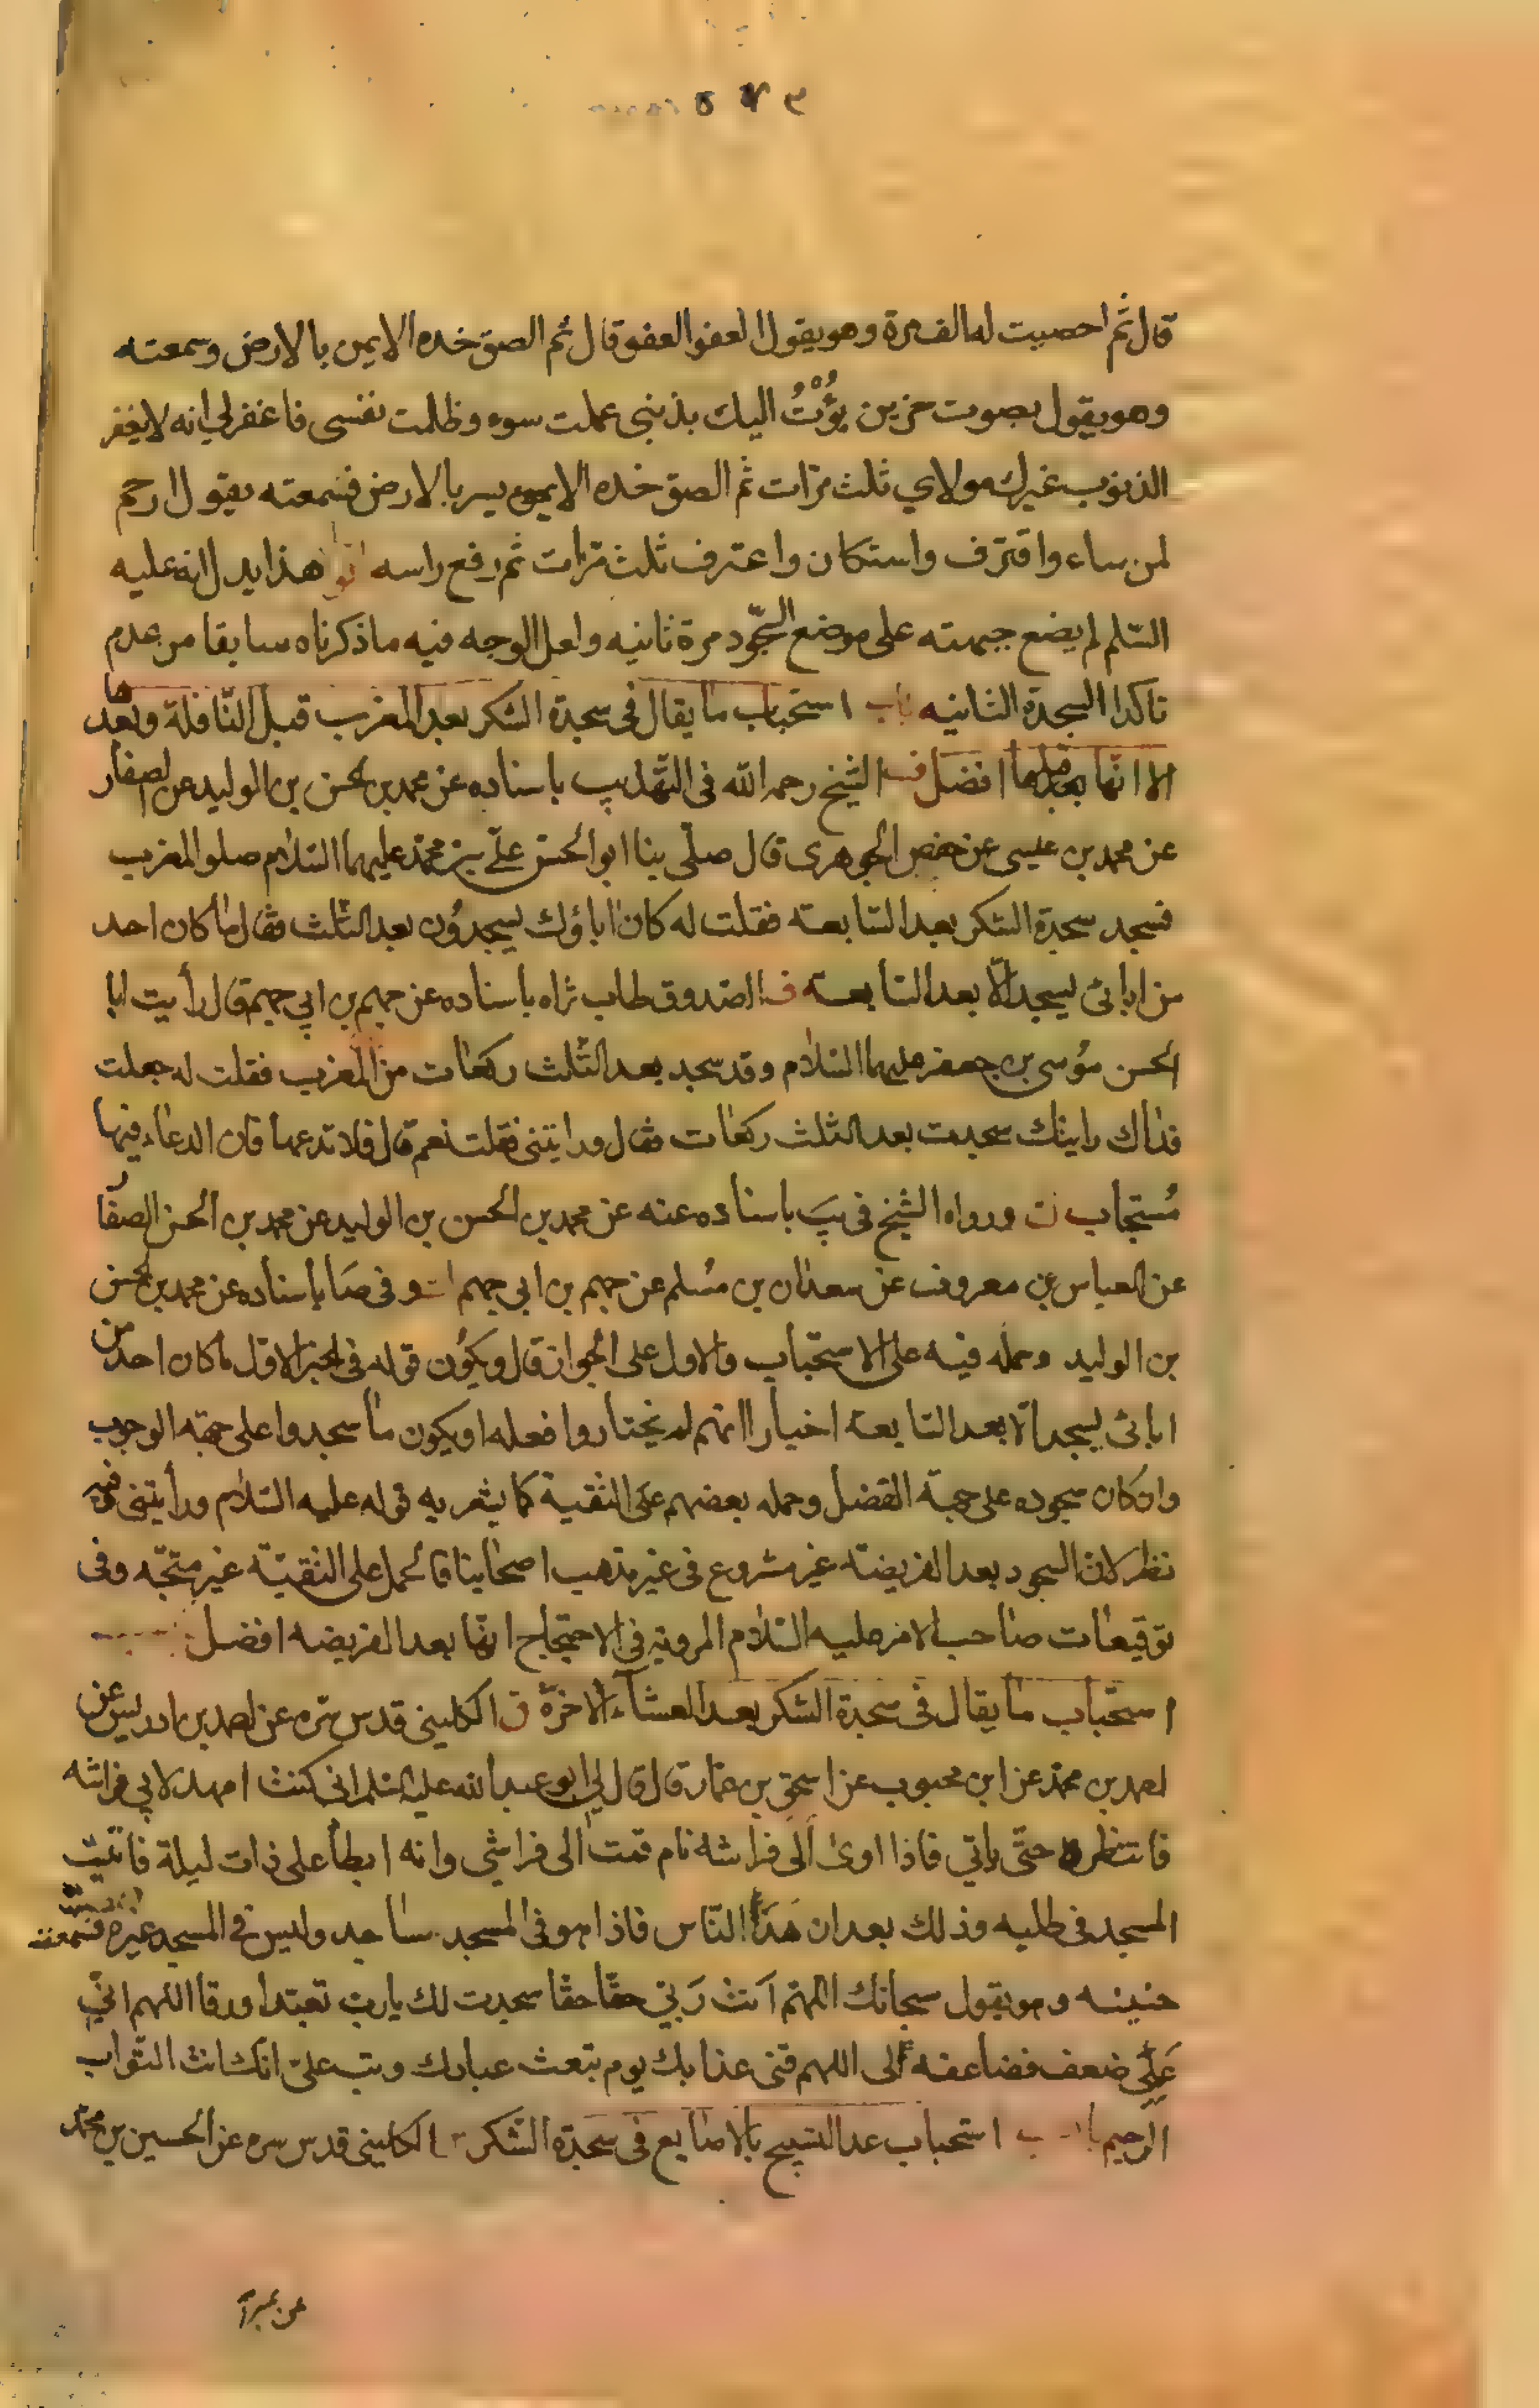 قال ثم احصيت له الف مرة وهو يقول العفو العفو قال ثم الصق خده الايمن بالارض وسمعته
وهو يقول بصوت حزين بؤت اليك بذنبي عملت سوء وظلمت نفسي فاغفرلي انه لا يغفر
الذنوب غيرك مولاي ثلث مرّات ثم الصق خده الايسر بالارض فسمعته يقول ارحم
لمن ساء واقترف واستكان واعترف ثلث مرّات ثم رفع راسه هذا يدل انه عليه
السّلم لم يضع جبهته على موضع السّجود مرة ثانيه ولعل الوجه فيه ما ذكرناه سابقا من عدم
تاكد السجدة الثانيه باب استحباب ما يقال في سجدة الشكر بعد المغرب قبل النّافلة وبعدها
الا انّها افضل الشيخ رحمه الله في التّهذيب باسناده عن محمد بن الحسن بن الوليد عن الصفار
عن محمد بن عيسى عن حفص الجوهرى قال صلّى بنا ابو الحسن علّي بن محمّد عليهما السّلام صلوة المغرب
فسجد سجدة الشكر بعد السّابعة فقلت له كان اباؤك يسجدُون بعد الثّلث فقال ما كان احد
من ابائى يسجد الّا بعد السّابعة الصّدوق طاب ثراه باسناده عن جهم بن ابي جهم قال رأيت ابا
الحسن مُوسى بن جعفر عليهما السّلام وقد سجد بعد الثّلث ركعات من المغرب فقلت له جعلت
فداك رايتك سجدت بعد الثلث ركعات فقال ورايتنى فقلت نعم قال فلا تدعها فان الدعاء فيها
مُستجاب ورواه الشيخ في يَب باسناده عنه عن محمد بن الحسن بن الوليد عن محمد بن الحسن الصفّار
عن العباس بن معروف عن سعدان بن مسُلم عن جهم بن ابي جهم وفي صَا باسناده عن محمد بن الحسن
بن الوليد وحمله فيه على الاستحباب والاول على الجواز قال ويكوُن قوله في الخبر الاوّل ما كان احد من
ابائى يسجد الّا بعد السّابعة اخبارا انهم لم يختاروا فعله او يكون ما سجدوا على جهة الوجوب
وان كان سجوده على جهة الفضل وحمله بعضهم على التّقية كما يشعر به قوله عليه السّلام ورأيتنى وفيه
نظر لان السجود بعد الفريضة غير مشروع في غير مذهب اصحابنا فالحمل على التقيّة غير متجّه وفى
توقيعات صاحب الامر عليه السّلام المرويّة في الاحتجاج انّها بعد الفريضه افضل
استحباب ما يقال في سجدة الشكر بعد العشاء الاخرة الكليني قدس سّره عن احمد بن ادريس عن
احمد بن محمّد عن ابن محبوب عن اسحق بن عمّار قال قال لي ابو عبد الله عليه السّلم اني كنت امهد لابي فراشه
فانتظره حتّى ياتي فاذا اوى الى فراشه نام قمت الى فراشي وانه ابطأ على ذات ليلة فاتيت
المسجد في طلبه وذلك بعد ان هَدَأ النّاس فاذا هو في المسجد ساجد وليس في المسجد غيره فسمعت
حنينه وهو يقول سبحانك اللهّم انت رَبّي حقّا حقّا سجدت لك يا ربّ تعبّدا ورقا اللهم انّ
عَمَلي ضعف فضاعفه لى اللهم قنى عذابك يوم تبعث عبادك وتب علىّ انّك انت التّواب
الرحيم استحباب عد التسبيح بالاصابع في سجدة الشّكر الكليني قدس سره عن الحسين بن محمّد